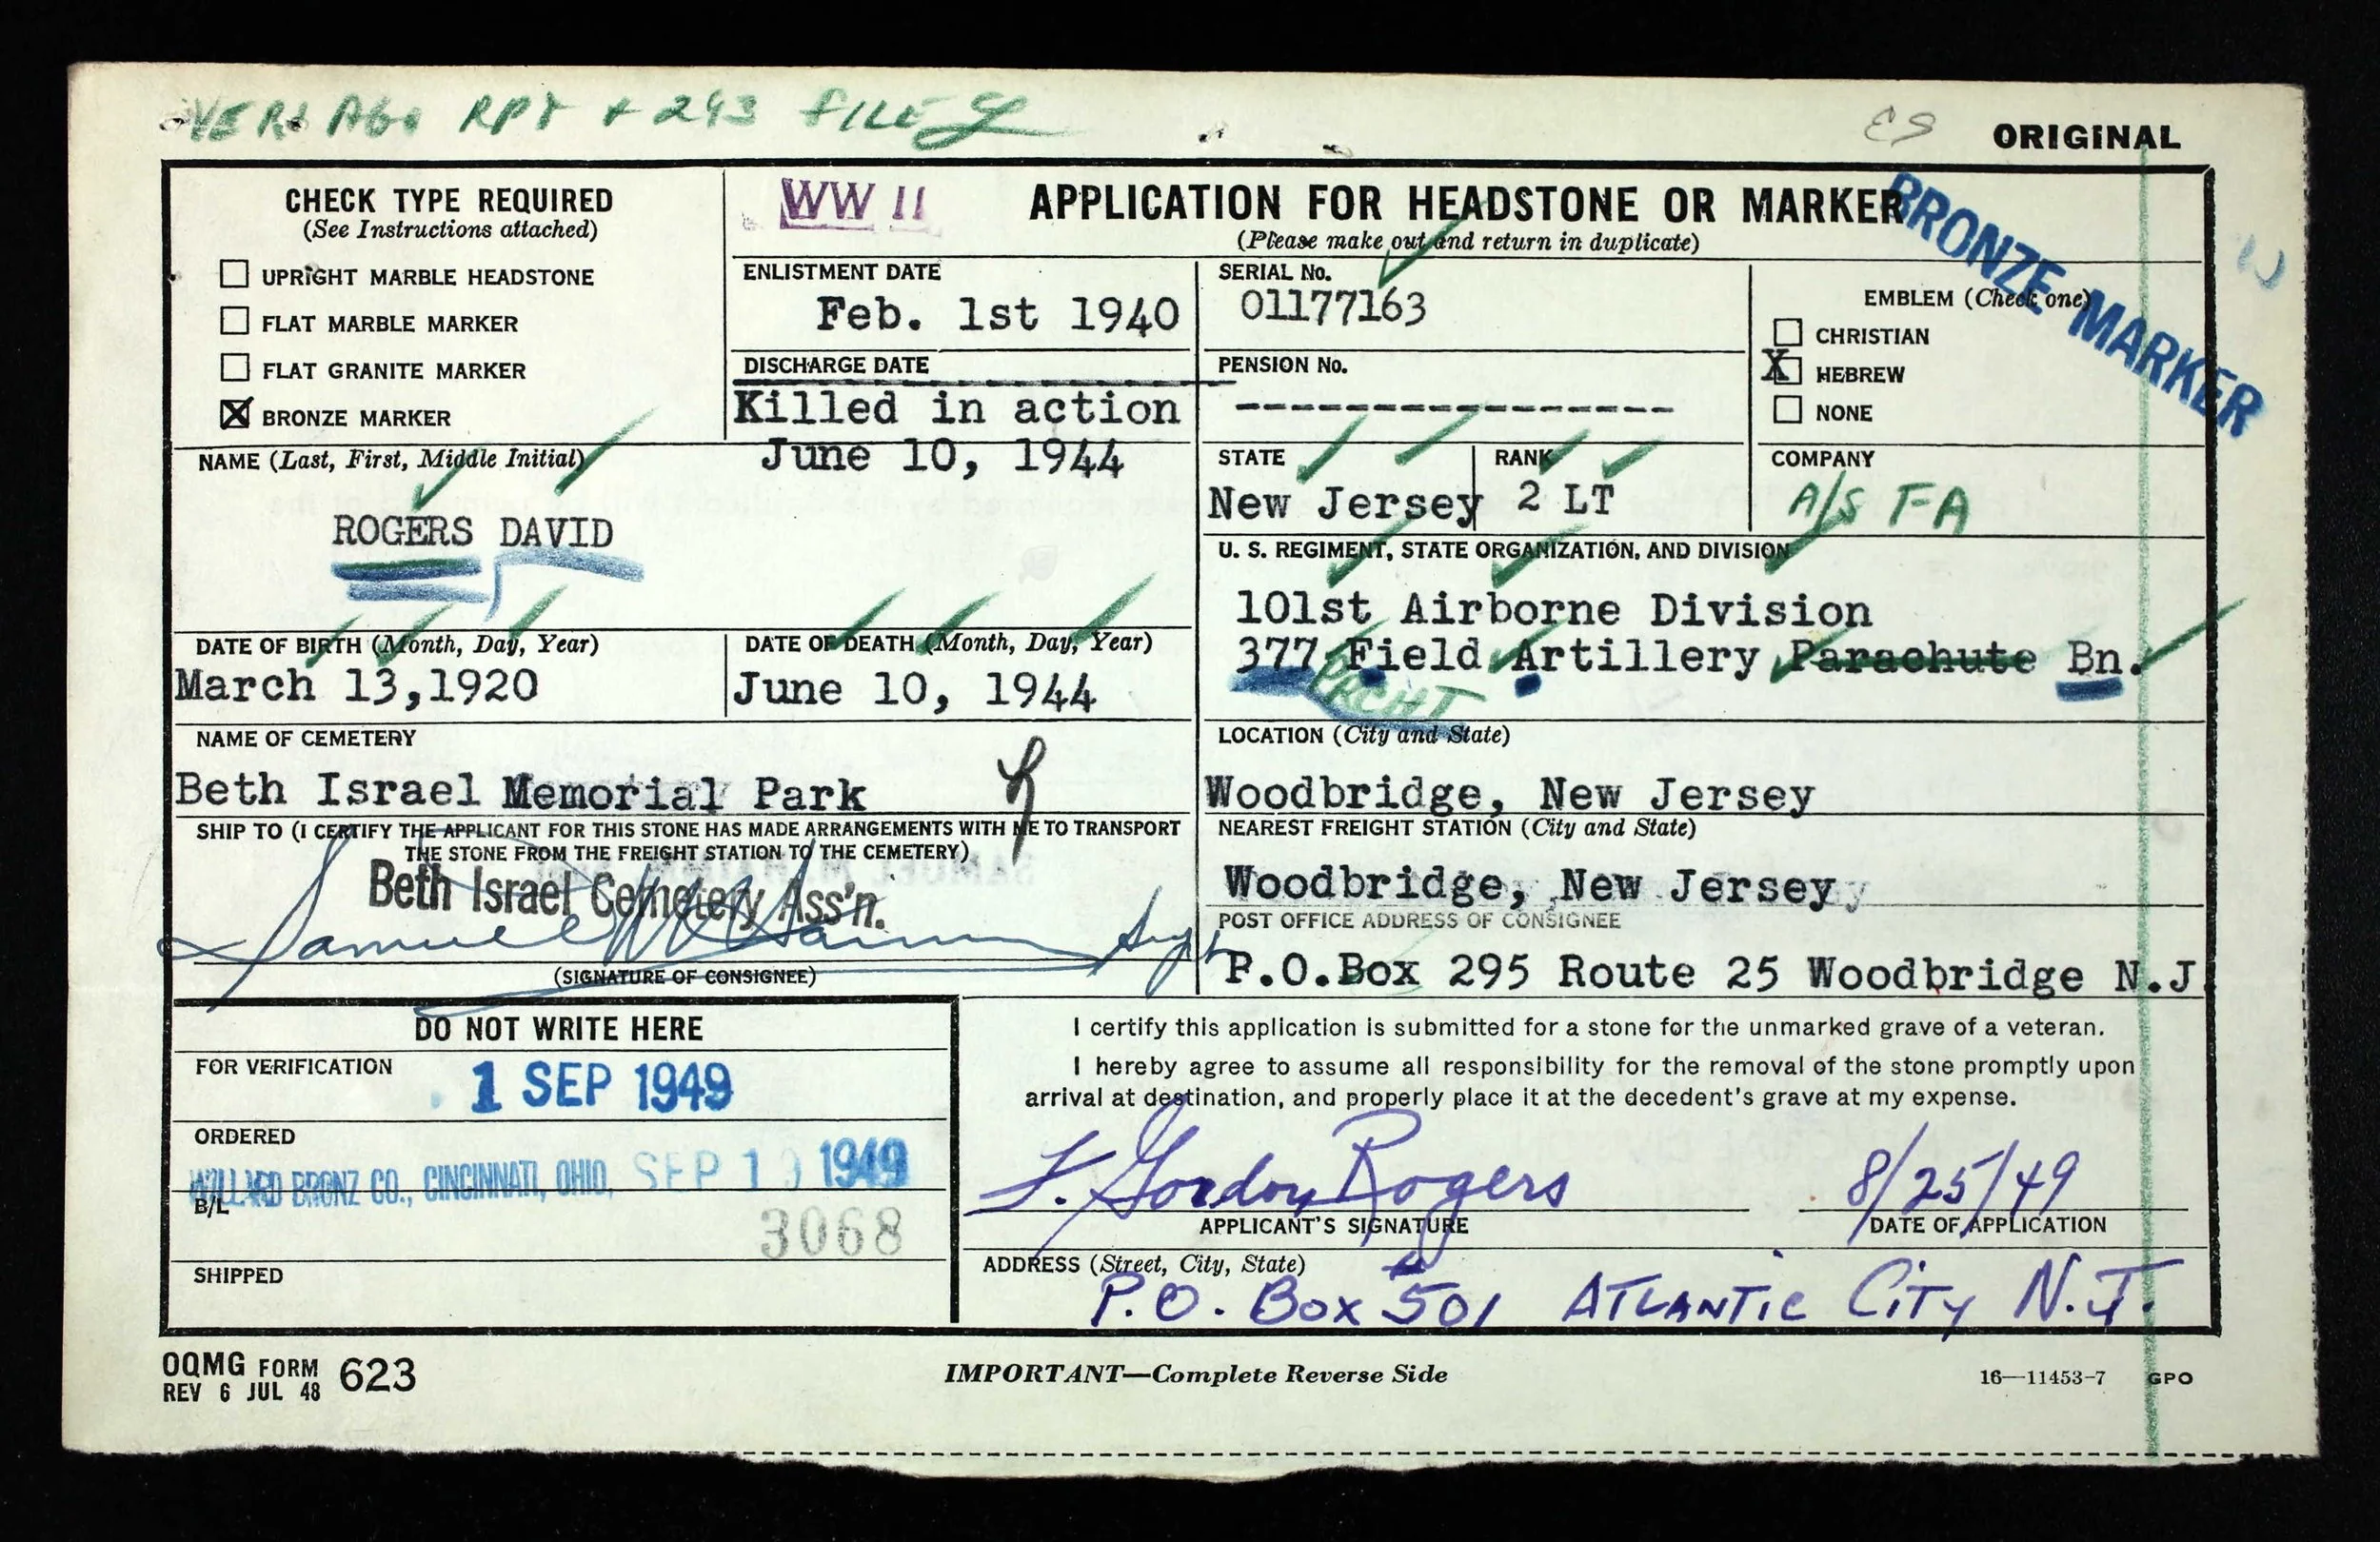 VER. AGO RPT + 293 FILE
ES
ORIGINAL
CHECK TYPE REQUIRED
(See Instructions attached)
UPRIGHT MARBLE HEADSTONE
FLAT MARBLE MARKER
FLAT GRANITE MARKER
X BRONZE MARKER
WW II
APPLICATION FOR HEADSTONE OR MARKER
(Please make out and return in duplicate)
BRONZE MARKER
ENLISTMENT DATE
Feb. 1st 1940
SERIAL No.
01177163
EMBLEM (Check one)
CHRISTIAN
X HEBREW
NONE
DISCHARGE DATE
Killed in action
June 10, 1944
PENSION No.
-----------------
NAME (Last, First, Middle Initial)
ROGERS DAVID
STATE
New Jersey
RANK
2 LT
COMPANY
A/S FA
U. S. REGIMENT, STATE ORGANIZATION, AND DIVISION
101st Airborne Division
377 Field Artillery Parachute Bn.
PRCHT
DATE OF BIRTH (Month, Day, Year)
March 13,1920
DATE OF DEATH (Month, Day, Year)
June 10, 1944
NAME OF CEMETERY
Beth Israel Memorial Park
LOCATION (City and State)
Woodbridge, New Jersey
SHIP TO (I CERTIFY THE APPLICANT FOR THIS STONE HAS MADE ARRANGEMENTS WITH ME TO TRANSPORT
THE STONE FROM THE FREIGHT STATION TO THE CEMETERY)
Beth Israel Cemetery Ass'n.
Samuel Supt
(SIGNATURE OF CONSIGNEE)
NEAREST FREIGHT STATION (City and State)
Woodbridge, New Jersey
POST OFFICE ADDRESS OF CONSIGNEE
P.O.Box 295 Route 25 Woodbridge N.J.
DO NOT WRITE HERE
FOR VERIFICATION
1 SEP 1949
ORDERED
WILLARD BRONZ CO., CINCINNATI, OHIO, SEP 1 1949
B/L
3068
SHIPPED
I certify this application is submitted for a stone for the unmarked grave of a veteran.
I hereby agree to assume all responsibility for the removal of the stone promptly upon
arrival at destination, and properly place it at the decedent's grave at my expense.
F. Gordon Rogers
8/25/49
APPLICANT'S SIGNATURE
DATE OF APPLICATION
ADDRESS (Street, City, State)
P.O. Box #501 ATLANTIC CITY N.J.
OQMG FORM 623
REV 6 JUL 48
IMPORTANT—Complete Reverse Side
16—11453-7 GPO